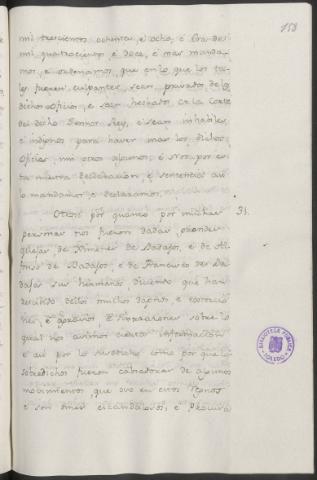 158
mil trescientos ochenta, é ocho, é Era de
mil quatrocientos é doce, é mas manda-
mos, é ordenamos, que en lo que los ta-
les fueren culpantes, sean privados de los
dichos oficios, é sean hechados de la Corte
del dicho Señor Rey, é sean inhabiles,
é indignos para haver mas los dichos
oficios, ni otro algunos; é Nos por es-
ta nuestra declaracion, é sentencia asi
lo mandamos, é declaramos.
Otrosi por quanto por muchas 31.
personas nos fueron dadas grandes
quejas de Ximenez de Badajos, é de Al-
fonso de Badajos, é de Francisco de Ba-
dajos sus hermanos, diciendo que han
hecho muchos daños, é
é agravios, é sobre lo
qual nos avimos cierta informacion
é asi por lo susodicho como por que los
sobredichos fueron de algunos
movimientos que ovo en estos Reynos
é son omes escandalosos, é
BIBLIOTECA PUBLICA
TOLEDO